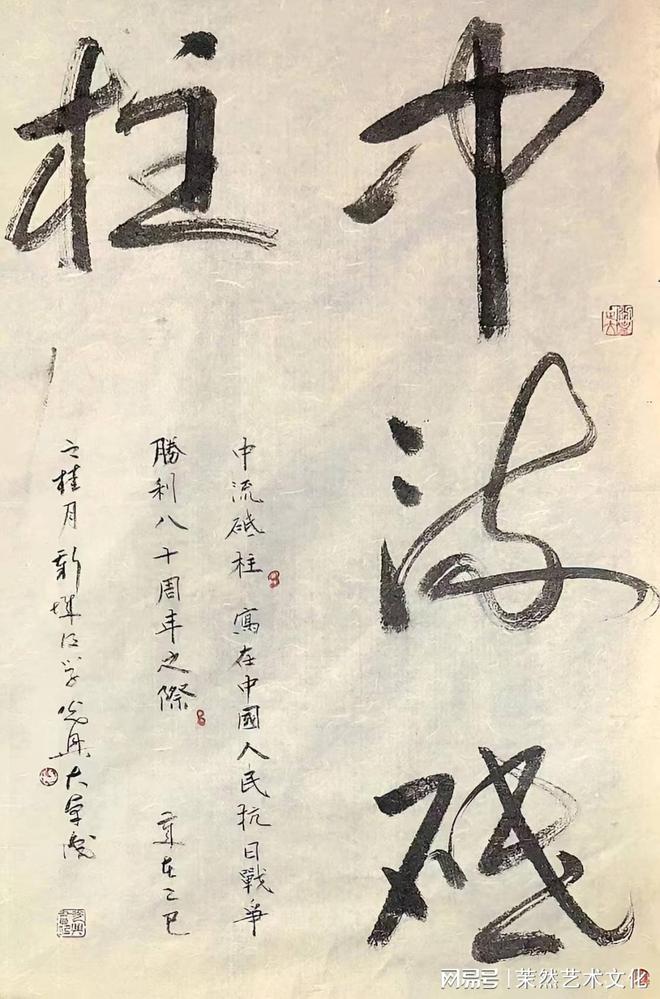 中流砥
柱
中流砥柱 寫在中國人民抗日戰爭
勝利八十周年之際 歲在乙巳
之桂月新
大草
网易号 | 茉然艺术文化